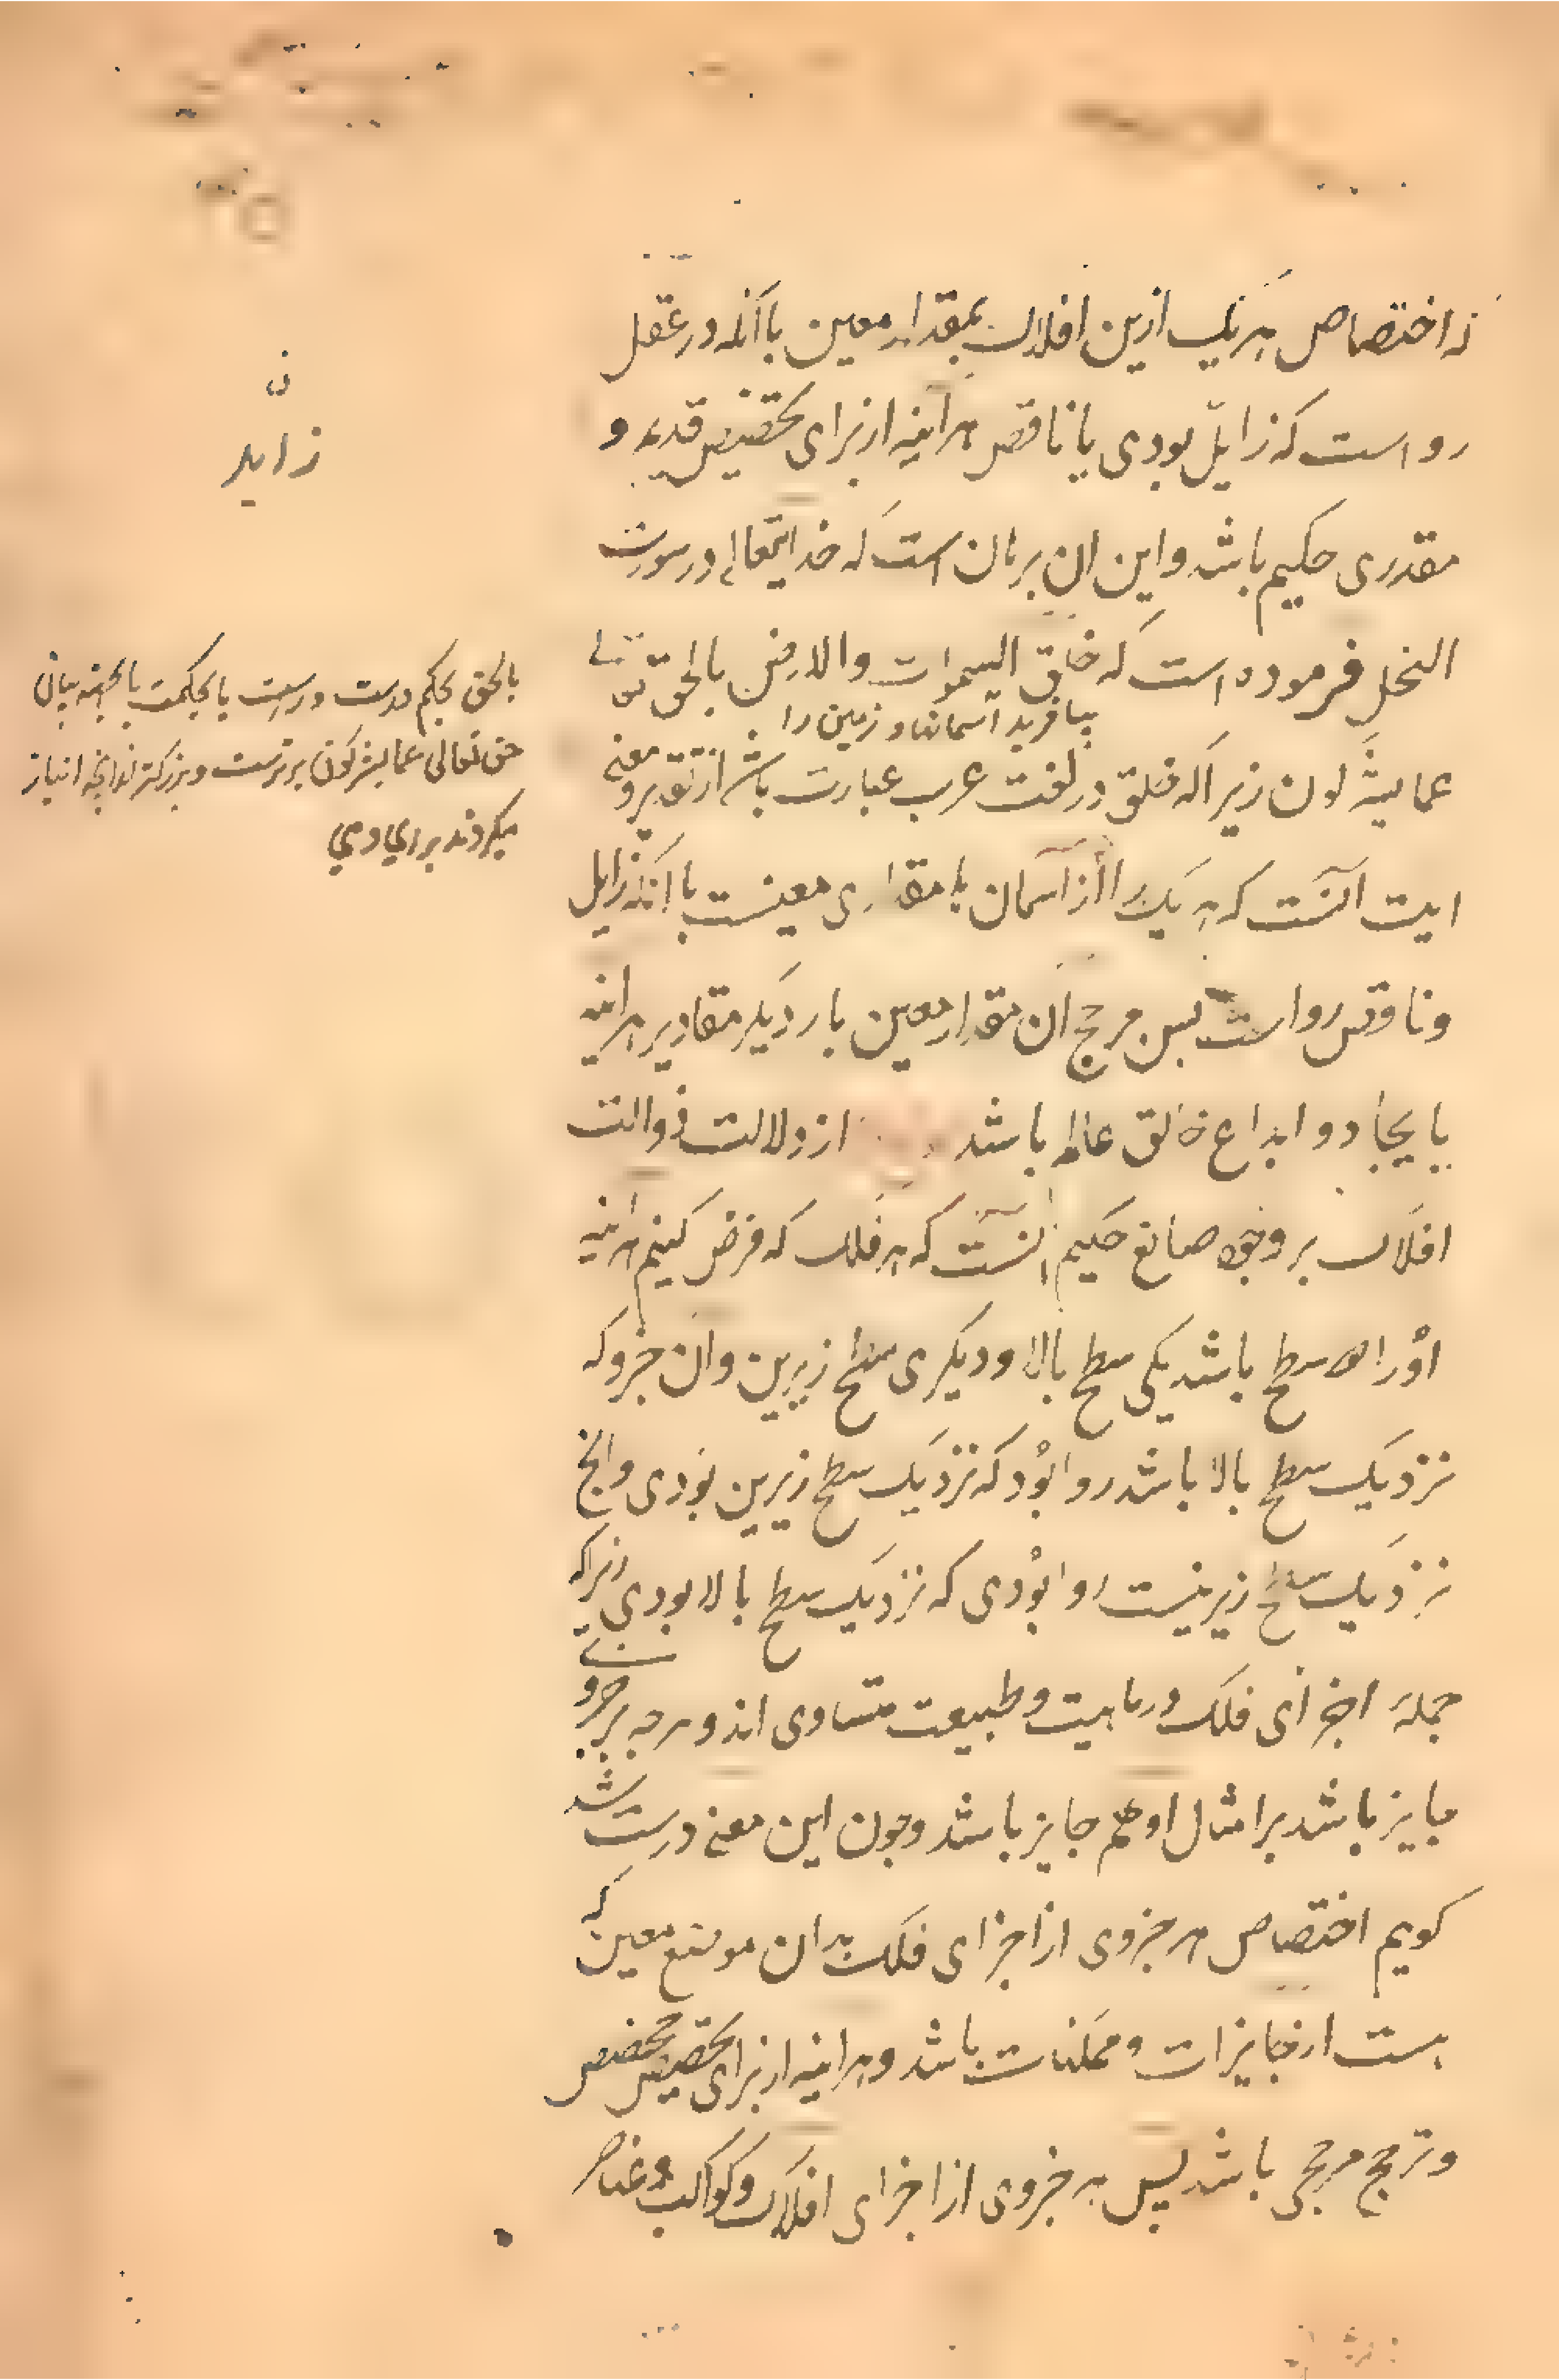 که اختصاص هر یک ازین افلاک بمقدار معین با آنکه در عقل
روا است که زایل بودی یا ناقص هراینه از برای تخصیص قدیر و
مقدری حکیم باشد و این ان برهان است که خدایتعالی در سورت
النحل فرموده است که خلق السموات والارض بالحق تعالی
بیافرید آسمانها و زمین را
عما یشرکون زیرا که خلق در لغت عرب عبارت باشد از تقدیر و معنی
ایت آنست که هر یک را از آسمان با مقداری معینست با آنکه زایل
و ناقص روا است پس مرجح ان مقدار معین بار دیگر مقادیر هراینه
بایجاد و ابداع خالق عالم باشد از دلالت ذوالت
افلاک بر وجود صانع حکیم آنست که هر فلک که فرض کنیم هراینه
او را دو سطح باشد یکی سطح بالا و دیگری سطح زیرین و ان جزو که
نزدیک سطح بالا باشد روا بود که نزدیک سطح زیرین بودی و انچ
نزدیک سطح زیرینست روا بودی که نزدیک سطح بالا بودی زیراکه
جمله اجزای فلک در ماهیت و طبیعت متساوی اند و هرچه بر جزوی
جایز باشد بر امثال او هم جایز باشد و چون این معنی درست شد
کویم اختصاص هر جزوی از اجزای فلک بدان موضع معین که
هست از جایزات و ممکنات باشد و هراینه از برای تخصیص مخصص
و ترجیح مرجحی باشد پس هر جزوی از اجزای افلاک و کواکب و عناصر
ن
زاید
بالحق بحکم درست و راست یا بحکمت یا بجهة بیان
حق تعالی عما یشرکون برترست و بزرکتر از انچه انباز
میکردند برای وی